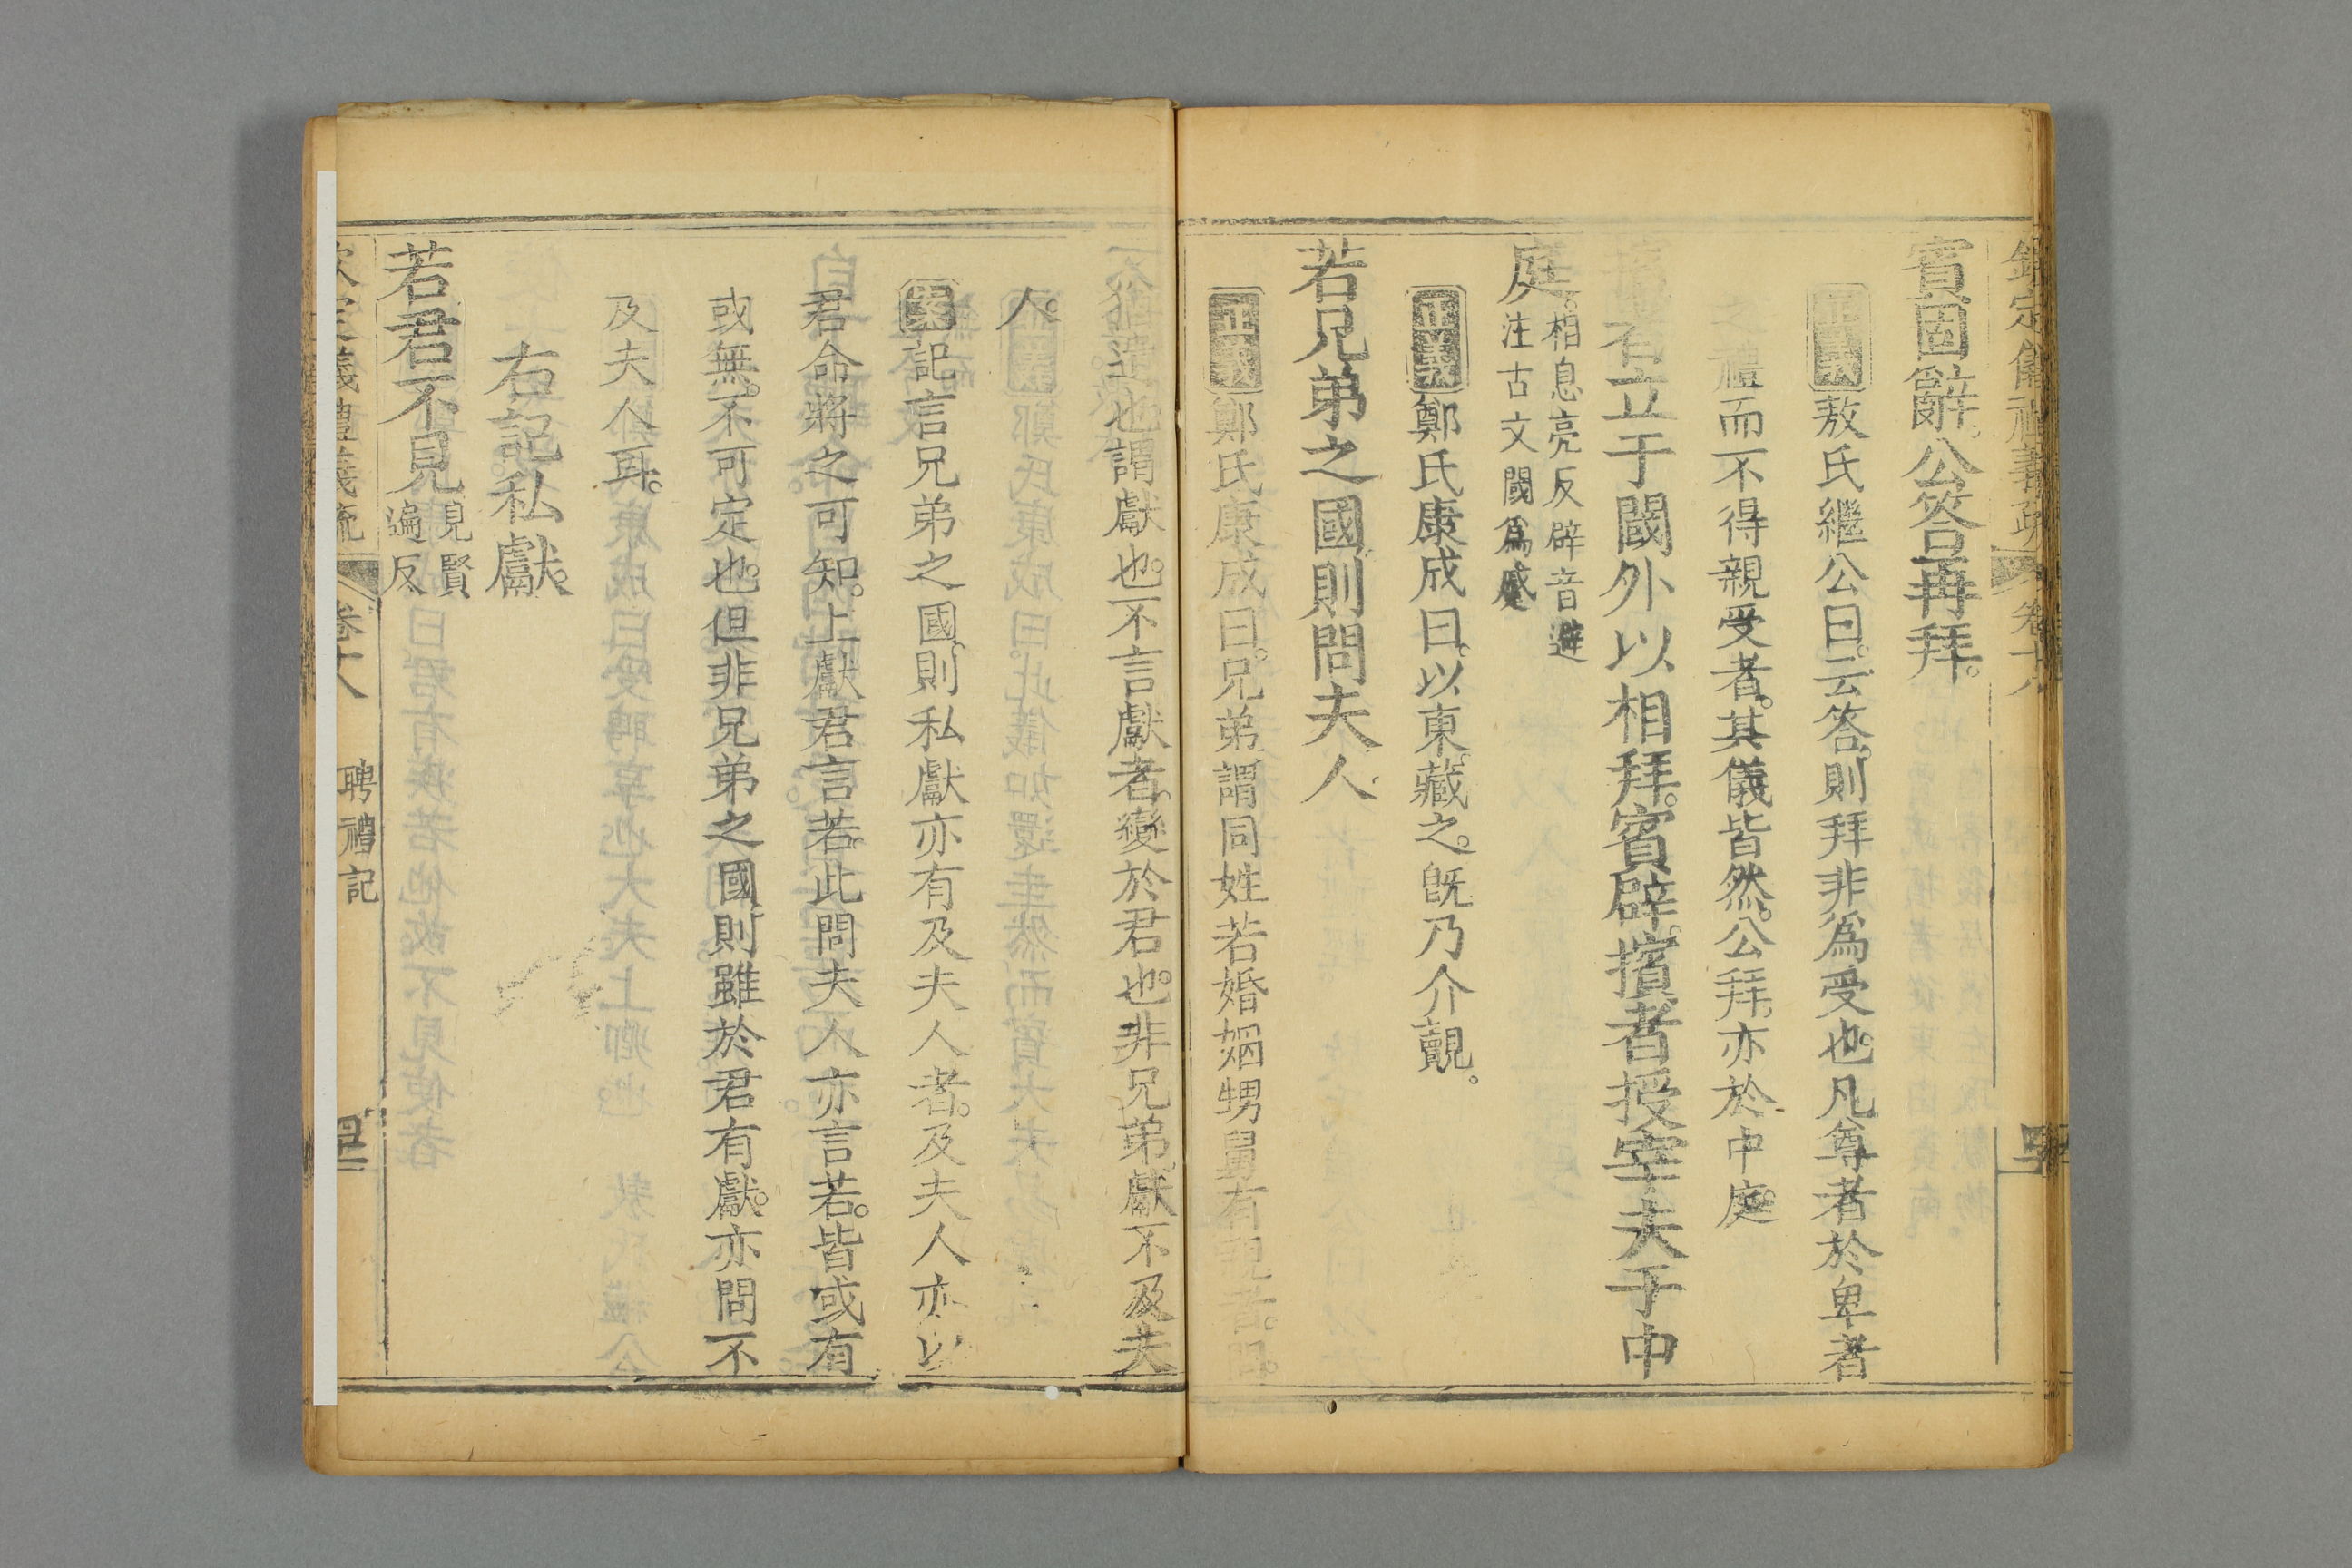 欽定儀禮義疏 卷十八
賓固辭。公答再拜。
正義敖氏繼公曰。云答。則拜非爲受也。凡尊者於卑者
之禮而不得親受者。其儀皆然。公拜。亦於中庭。
擯者立于閾外以相拜。賓辟。擯者授宰夫于中
庭。相息亮反辟音避注古文閾爲蹙
正義鄭氏康成曰。以東。藏之。旣乃介覿。
若兄弟之國。則問夫人。
正義鄭氏康成曰。兄弟。謂同姓若婚姻甥舅有親者。問。
猶遺也。謂獻也。不言獻者。變於君也。非兄弟。獻不及夫
人。
案記言兄弟之國。則私獻亦有及夫人者。及夫人亦以
君命將之可知。上獻君言若。此問夫人亦言若。皆或有
或無。不可定也。但非兄弟之國。則雖於君有獻。亦問不
及夫人耳。
右記私獻。
若君不見見賢遍反
欽定儀禮義疏 卷十八 聘禮記